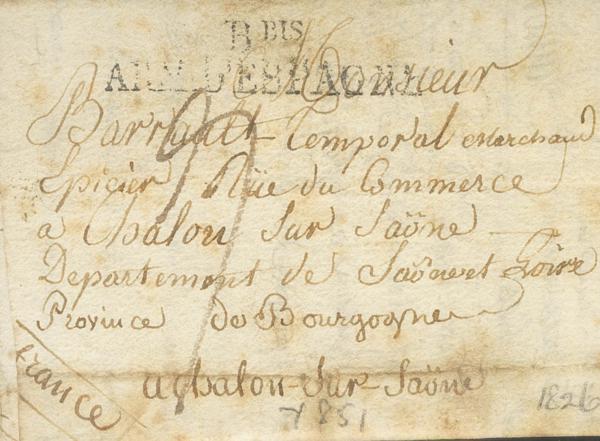 B BIS
ARM. D'ESPAGNE
Monsieur
Barrault Temporal Marchand
Epicier Rüe du Commerce
a Chalon sur Saöne
Departement de Saöne et Loire
Province de Bourgogne
a Chalon-sur-Saöne
france
1826